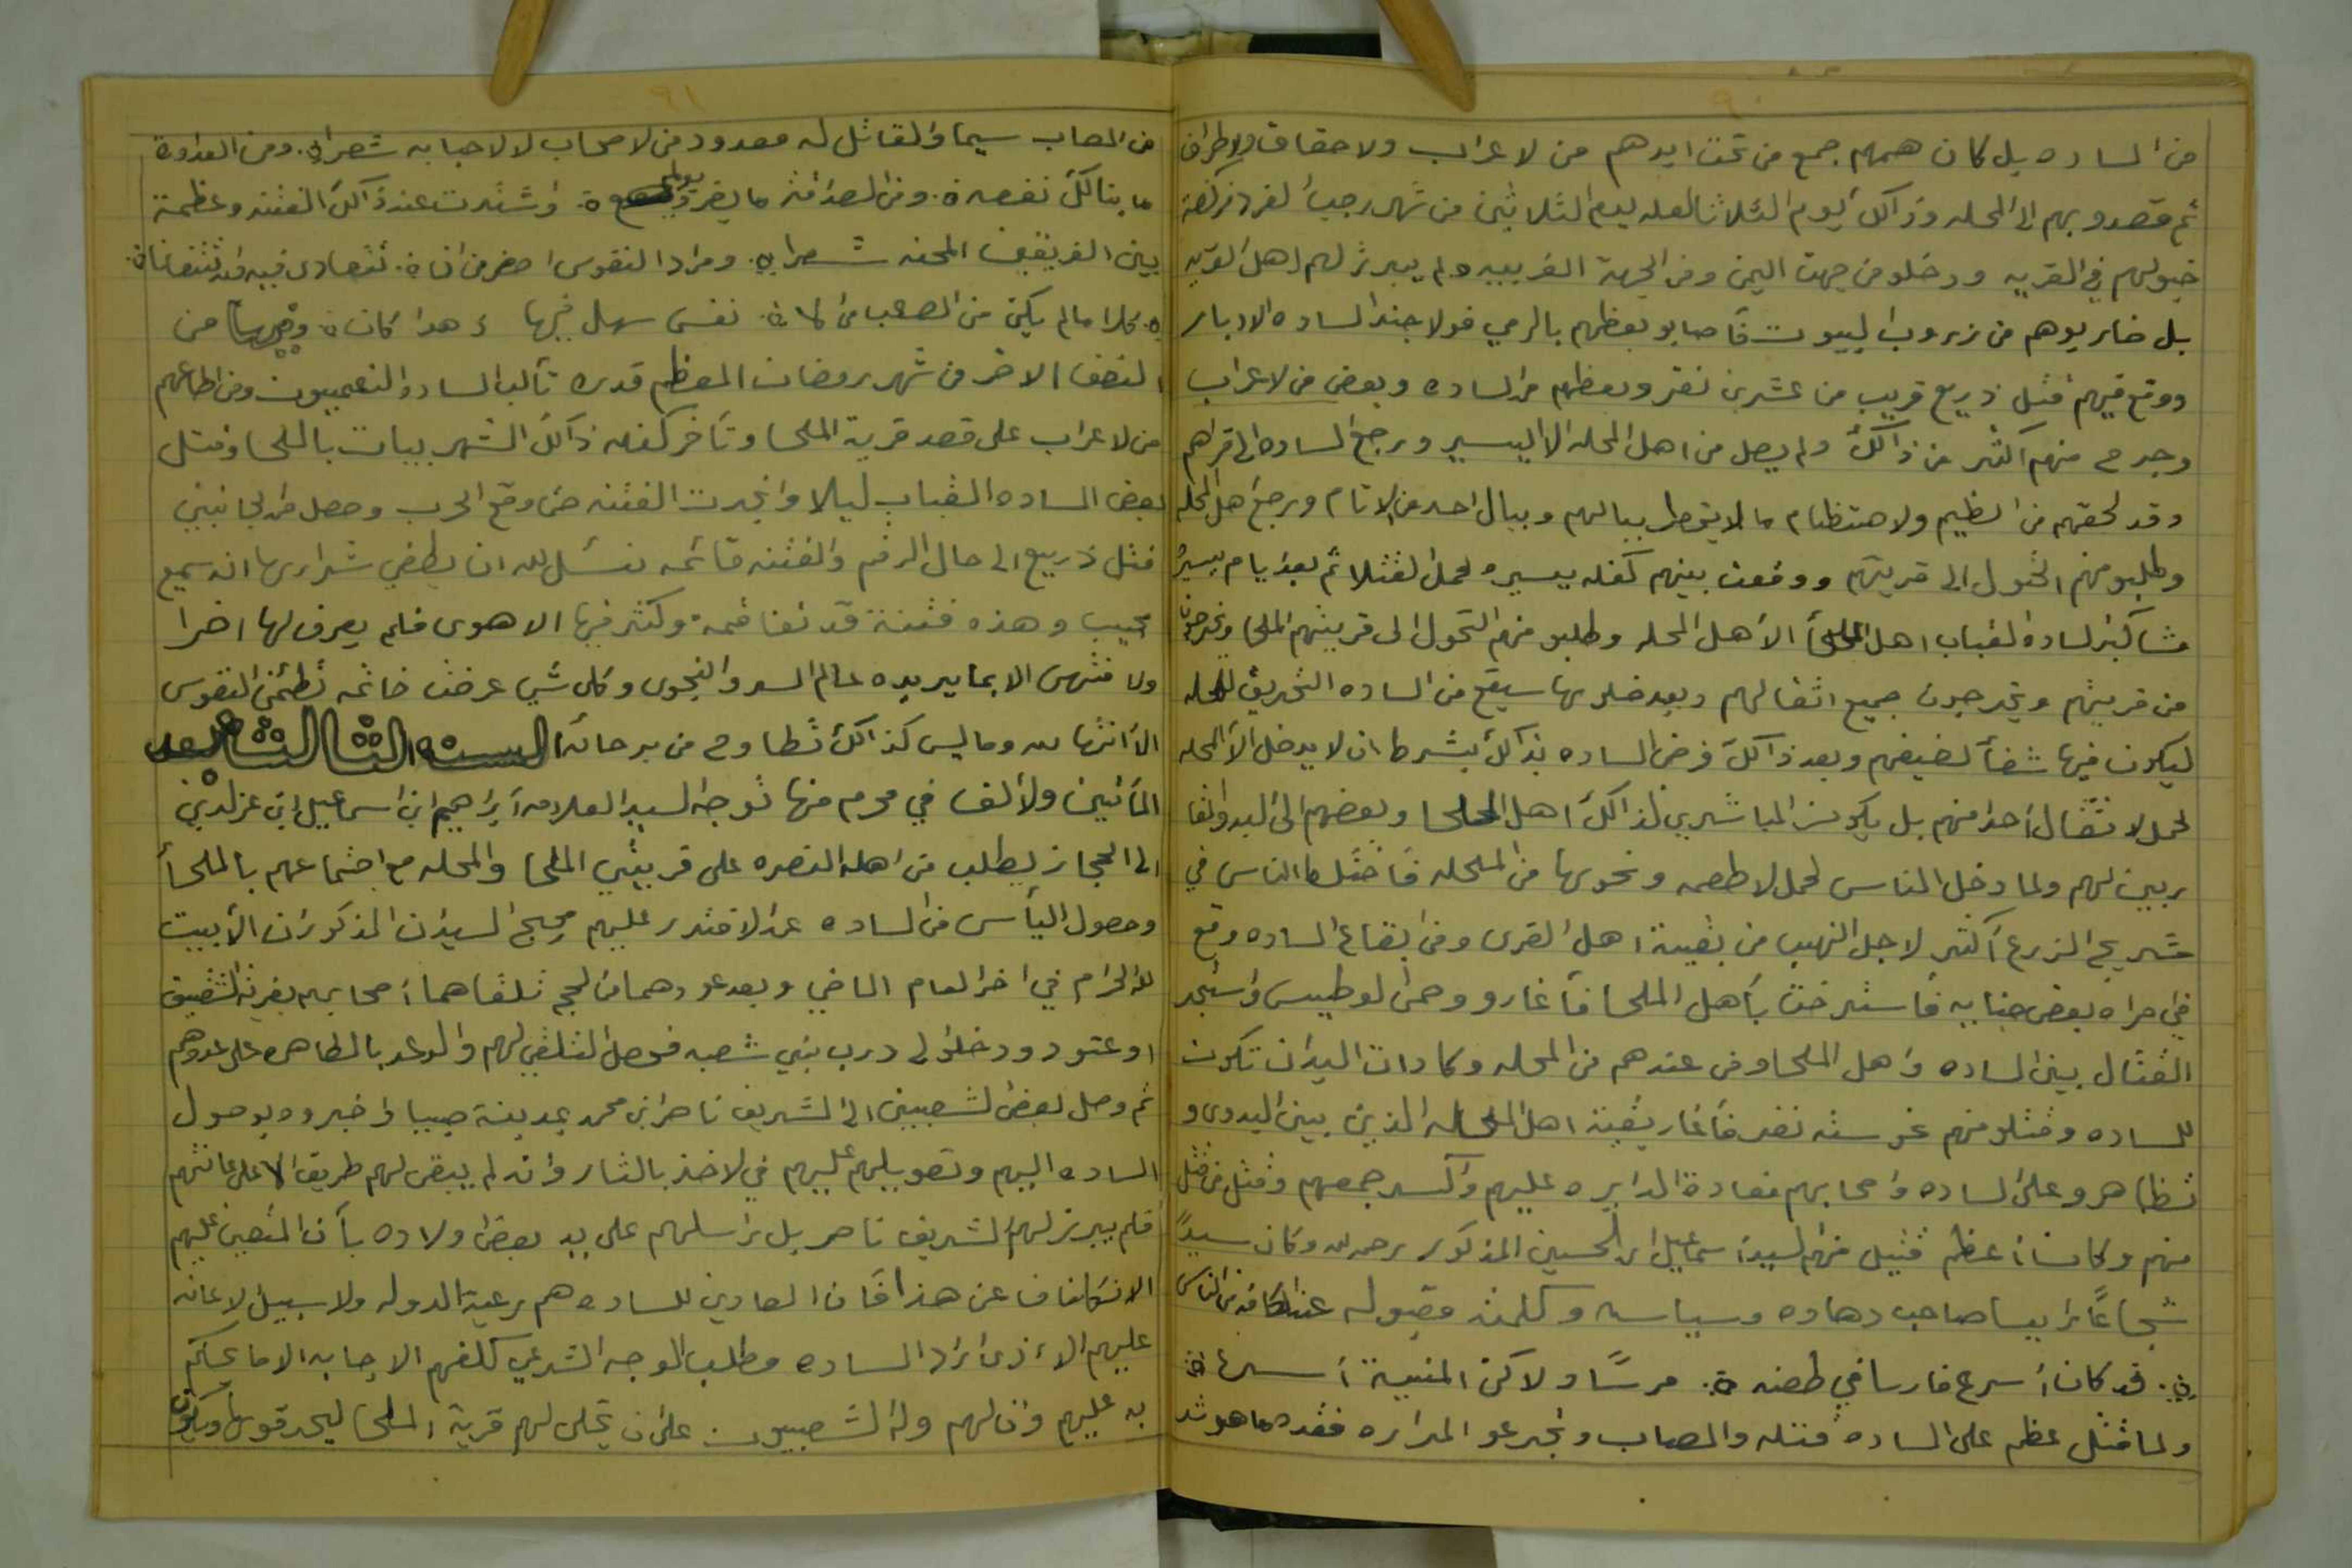 ٩٠
من الساده بل كان همهم جمع من تحت ايدهم من لاعراب ولاحقاق ولاطراف
ثم قصدو بهم الى المحله وذالك ليوم الثلاثا لعله ليوم الثلاثين من شهر رجب الفرد
خيولهم في القريه ودخلو من جهت اليمن ومن الجهة الغربيه ولم يبرز لهم اهل القريه
بل ضاربوهم من زروب لبيوت فأصابو بعظهم بالرمي فولا جند الساده الادبار
ووقع فيهم قتل ذريع قريب من عشرين نفر وبعظهم من الساده وبعض من لاعراب
وجرح منهم اكثر من ذالك ولم يصل من اهل المحله الا اليسير ورجع الساده الى قراهم
وقد لحقهم من الظيم ولاهتظام ما لا يخطر ببالهم وببال احد من لانام ورجع اهل المحله
وطلبو منهم التحول الى قريتهم ووقعت بينهم كفله يسيره لحمل لقتلا ثم بعد ايام يسيره
مشا كبر لساده القباب اهل الملحأ الا اهل المحله وطلبو منهم التحول الى قريتهم الملحا ويخرجون
من قريتهم ويخرجون جميع اثقالهم وبعد خلوها سيقع من الساده التحريق للمحله
ليكون فيها شفأ لضيفهم وبعد ذالك فرض الساده بذالك بشرط ان لا يدخل الا المحله
لحمل لاثقال احد منهم بل يكون المباشرين لذالك اهل الملحا وبعضهم الى البدو
بربين لهم ولما دخل الناس لحمل لاطعمه ونحوها من المحله فأختلط الناس في
شريح الزرع اكثر لاجل النهب من بقية اهل القرى ومن اتباع الساده وقع
في مراه بعض جنابيه فأسترخت بأهل الملحا فأغارو وحمى لوطيس وأستجر
القتال بين الساده وأهل الملحا ومن عندهم من المحله وكادات اليدان تكون
للساده وقتلو منهم نحو سته نفر فأغار بقية اهل المحله الذين بين البدوى و
تظاهرو على الساده واصحابهم فعادة الدايره عليهم وأكسر جمعهم وقتل من قتل
منهم وكان أعظم قتيل منهم السيد اسماعيل ابن الحسين المذكور رحمه الله وكان سيداً
شجاعاً رايسا صاحب دهاه وسياسه وكلمته مقبوله عند كافة الناس
قد كان أسرع فارسا في طعنه فرساً ولاكن المنية أسرعا
ولما قتل عظم على الساده قتله والمصاب وتجرعو المراره فقده ما هو شد
٩١
من المصاب سيما والقاتل له معدود من لاصحاب لا لاحبا به شعرا ومن العداوة
ما ينالك نفعه ومن الصداقة ما يضر ويولم وأشتدت عند ذالك الفتنه وعظمة
بين الفريقين المحنه شعرا ومراد النفوس اصغر من ان تتعادى فيه وان تتفانا
كلما لم يكن من الصعب في الانفس سهل فيها اذ هو كانا وفيها من
النصف الاخر من شهر رمضان المعظم قدره تألب الساده النعميون ومن اطاعهم
من لاعراب على قصد قرية الملحا وتأخر كفله ذالك الشهر ببيات بالملحا وقتل
بعض الساده القباب ليلا وأنجرت الفتنه حتى وقع الحرب وحصل من لجانبين
قتل ذريع الى حال الرقم والفتنه قائمه نسئل الله ان يطفي شرارها انه سميع
مجيب وهذه فتنة قد تفاقمه وكثر فيها الاهوى فلم يعرف لها اخرا
ولا منتهى الا بما يريده عالم السر والنجوى وكل شي عرفت خاتمه تطمئن النفوس
الا أنتها له وما ليس كذالك تطاوح من برحائه السنه الثالثه بعد
المأتين ولألف في محرم منها توجه السيد العلامه أبراهيم ابن اسماعيل ابن عز لدين
الى الحجاز يطلب من اهله النصره على قريتي الملحا والمحله مع اجتماعهم بالملحأ
وحصول اليأس من الساده عن لاقتدر عليهم وحج السيدان المذكوران الا بيت
الله الحرام في اخر العام الماضي وبعد عودهما من الحج تلقاهما أصحابهم بقرية الشقيق
اوعتود ودخلو الى درب بني شعبه فحصل التلقي لهم والوعد بالمظاهره على عدوهم
ثم وصل بعض لشعبيين الى الشريف ناصر ابن محمد بمدينة صبيا وأخبروه بوصول
الساده اليهم وتعويلهم عليهم في لاخذ بالثار وأنه لم يبقى لهم طريق الا على اعانتهم
فلم يبرز لهم لشريف ناصر بل راسلهم على يد بعض اولاده بأن المتعين عليهم
الانكفاف عن هذا فأن العادين للساده هم رعية الدوله ولا سبيل لاعانه
عليهم الا إذى اراد الساده مطلب الوجه الشرعي كلفهم الاجابه الا ما يحكم
به عليهم وأن لهم ولا الشعبيون على ان تخلى لهم قرية الملحا ليحرقوها ويكون